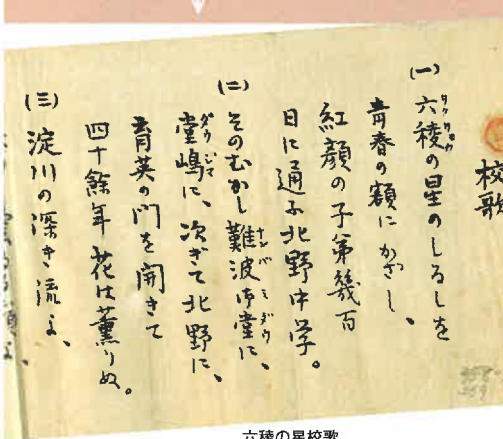 校歌
(一) 六稜の星のしるしを
青春の額にかざし、
紅顔の子弟幾百
日に通ふ北野中学。
(二) そのむかし難波御堂に、
堂嶋に、次ぎて北野に、
育英の門を開きて
四十餘年花は薫りぬ。
(三) 淀川の深き流よ、
六稜の星校歌